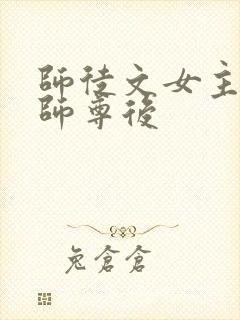 師徒文女主
師尊後
兔倉倉